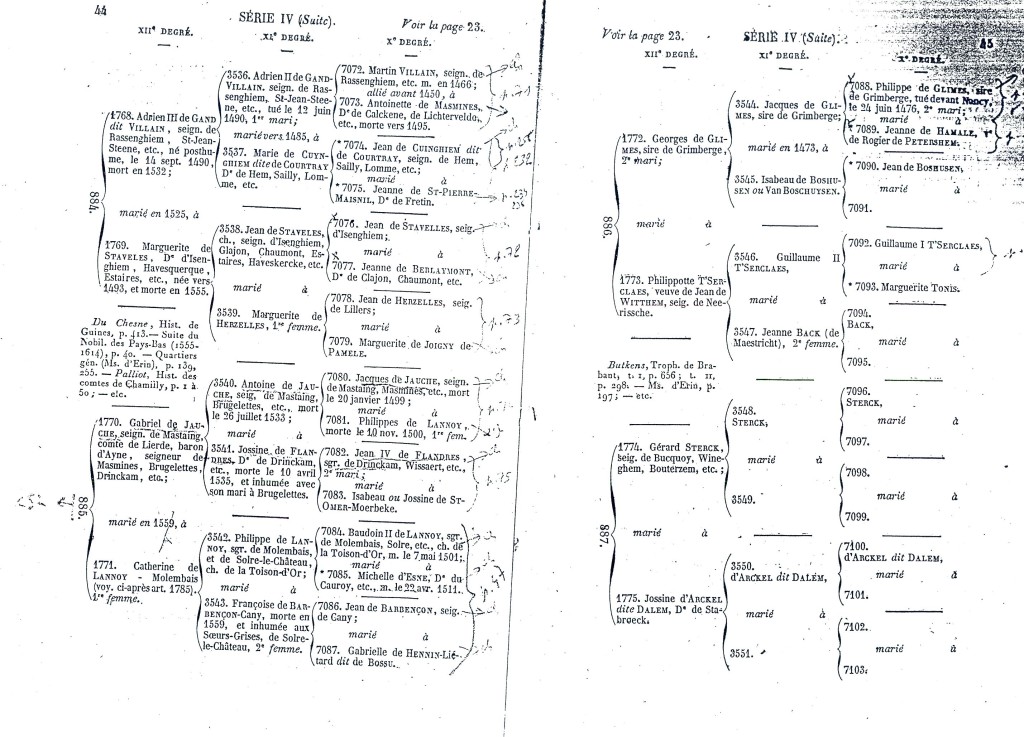 44
SÉRIE IV (Suite).
Voir la page 23.
XIIᵉ DEGRÉ.
XIᵉ DEGRÉ.
Xᵉ DEGRÉ.
884.
1768. Adrien III de GAND
dit VILLAIN, seign. de
Rassenghien, St-Jean-
Steene, etc., né posthu-
me, le 14 sept. 1490,
mort en 1532;
marié en 1525, à
1769. Marguerite de
STAVELES, Dᵉ d'Isen-
ghiem, Havesquerque,
Estaires, etc., née vers
1493, et morte en 1555.
Du Chesne, Hist. de
Guines, p. 413. — Suite du
Nobil. des Pays-Bas (1555-
1614), p. 40. — Quartiers
gén. (Ms. d'Erin), p. 139,
255. — Palliot, Hist. des
comtes de Chamilly, p. 1 à
50; — etc.
885.
1770. Gabriel de JAU-
CHE, seign. de Mastaing,
comte de Lierde, baron
d'Ayne, seigneur de
Masmines, Brugelettes,
Drinckam, etc.;
marié en 1559, à
1771. Catherine de
LANNOY - Molembais
(voy. ci-après art. 1785).
1ʳᵉ femme.
3536. Adrien II de GAND-
VILLAIN, seign. de Ras-
senghiem, St-Jean-Stee-
ne, etc., tué le 12 juin
1490, 1ᵉʳ mari;
marié vers 1485, à
3537. Marie de CUYN-
GHIEM dite de COURTRAY
Dᵉ de Hem, Sailly, Lom-
me, etc.
3538. Jean de STAVELES,
ch., seign. d'Isenghiem,
Glajon, Chaumont, Es-
taires, Haveskercke, etc.
marié à
3539. Marguerite de
HERZELLES, 1ʳᵉ femme.
3540. Antoine de JAU-
CHE, seig. de Mastaing,
Brugelettes, etc., mort
le 26 juillet 1533;
marié à
3541. Jossine de FLAN-
DRES, Dᵉ de Drinckam,
etc., morte le 10 avril
1535, et inhumée avec
son mari à Brugelettes.
3542. Philippe de LAN-
NOY, sgr. de Molembais,
et de Solre-le-Château,
ch. de la Toison-d'Or;
marié à
3543. Françoise de BAR-
BENÇON-Cany, morte en
1559, et inhumée aux
Sœurs-Grises, de Solre-
le-Château, 2ᵉ femme.
7072. Martin VILLAIN, seign. de
Rassenghiem, etc. m. en 1466;
allié avant 1450, à
7073. Antoinette de MASMINES,
Dᵉ de Calckene, de Lichterveldo,
etc., morte vers 1495.
*7074. Jean de CUINGHIEM dit
de COURTRAY, seign. de Hem,
Sailly, Lomme, etc.;
marié à
*7075. Jeanne de ST-PIERRE-
MAISNIL, Dᵉ de Fretin.
7076. Jean de STAVELLES, seig.
d'Isenghiem;
marié à
7077. Jeanne de BERLAYMONT,
Dᵉ de Clajon, Chaumont, etc.
7078. Jean de HERZELLES, seig.
de Lillers;
marié à
7079. Marguerite de JOIGNY de
PAMELE.
7080. Jacques de JAUCHE, seign.
de Mastaing, Masmines, etc., mort
le 20 janvier 1499;
marié à
7081. Philippes de LANNOY,
morte le 10 nov. 1500, 1ʳᵉ fem.
7082. Jean IV de FLANDRES,
sgr. de Drinckam, Wissaert, etc.,
2ᵉ mari;
marié à
7083. Isabeau ou Jossine de ST-
OMER-Moerbeke.
7084. Baudoin II de LANNOY, sgr.
de Molembais, Solre, etc., ch. de
la Toison-d'Or, m. le 7 mai 1501;
marié à
*7085. Michelle d'ESNE, Dᵉ du
Cauroy, etc., m. le 22 avr. 1511.
7086. Jean de BARBENÇON, seig.
de Cany;
marié à
7087. Gabrielle de HENNIN-Lié-
tard dit de BOSSU.
p. 71
p. 72
p. 73
p. 75
Voir la page 23.
SÉRIE IV (Suite).
45
XIIᵉ DEGRÉ.
XIᵉ DEGRÉ.
Xᵉ DEGRÉ.
886.
1772. Georges de GLI-
MES, sire de Grimberge,
2ᵉ mari;
marié à
1773. Philippotte T'SER-
CLAES, veuve de Jean de
WITTHEM, seig. de Nee-
rissche.
Butkens, Troph. de Bra-
bant, t. I, p. 656; t. II,
p. 298. — Ms. d'Erin, p.
197; — etc.
887.
1774. Gérard STERCK,
seig. de Bucquoy, Wine-
ghem, Bouterzem, etc.;
marié à
1775. Jossine d'ARCKEL
dite DALEM, Dᵉ de Sta-
brœck.
3544. Jacques de GLI-
MES, sire de Grimberge;
marié en 1473, à
3545. Isabeau de BOSHU-
SEN ou Van BOSCHUYSEN.
3546. Guillaume II
T'SERCLAES,
marié à
3547. Jeanne BACK (de
Maestricht), 2ᵉ femme.
3548.
STERCK;
marié à
3549.
3550.
d'ARCKEL dit DALEM,
marié à
3551.
7088. Philippe de GLIMES, sire
de Grimberge, tué devant Nancy,
le 24 juin 1476, 2ᵉ mari;
marié à
*7089. Jeanne de HAMALE,
de Rogier de PETERSHEM.
*7090. Jean de BOSHUSEN;
marié à
7091.
7092. Guillaume I T'SERCLAES,
marié à
*7093. Marguerite TONIS.
7094.
BACK,
marié à
7095.
7096.
STERCK,
marié à
7097.
7098.
marié à
7099.
7100.
d'ARCKEL dit DALEM,
marié à
7101.
7102.
marié à
7103.